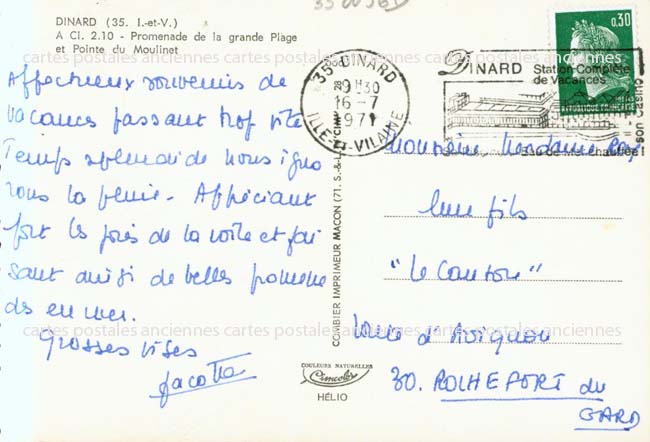 DINARD (35. I.-et-V.)
A CI. 2.10 - Promenade de la grande Plage
et Pointe du Moulinet
Affectueux souvenirs de
vacances passant trop vite
Temps splendide nous igno
rons la pluie. Appréciant
fort les joies de la voile et fai
sant aussi de belles promena
des en mer.
Grosses bises
COMBIER IMPRIMEUR MACON (71. S.-&-L.)
COULEURS NATURELLES
Cimcolor
HÉLIO
35 DINARD
9H30
16-7
1971
ILLE-ET-VILAINE
DINARD Station Complète
de Vacances
son Casino
de Mer chauffée
0,30
REPUBLIQUE FRANÇAISE
Monsieur Madame
leur fils
Route d'Avignon
30. ROCHEFORT du
GARD
cartes postales anciennes cartes postales anciennes cartes postales anciennes
cartes postales anciennes cartes postales anciennes cartes postales anciennes